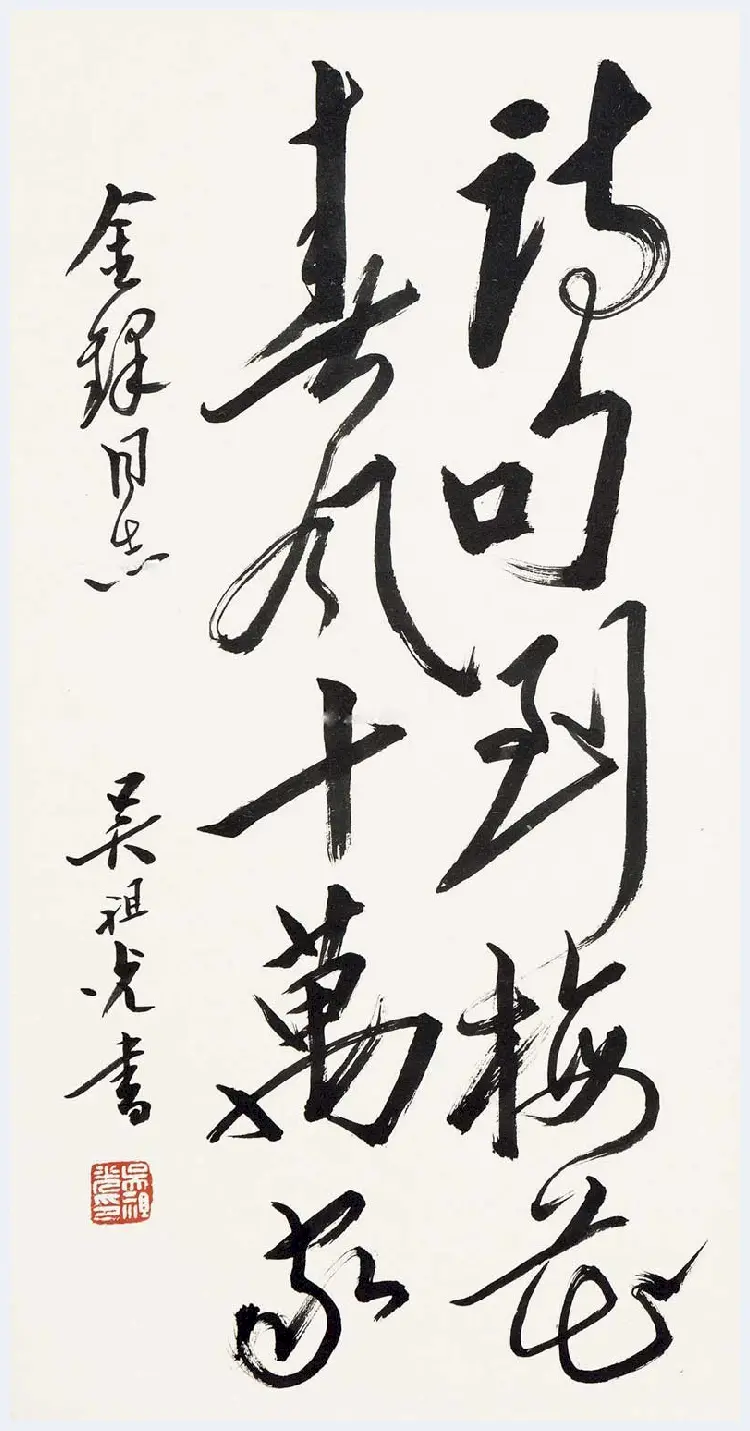 詩句到梅花
春風十萬家
金鐸同志
吳祖光書
吳祖光印